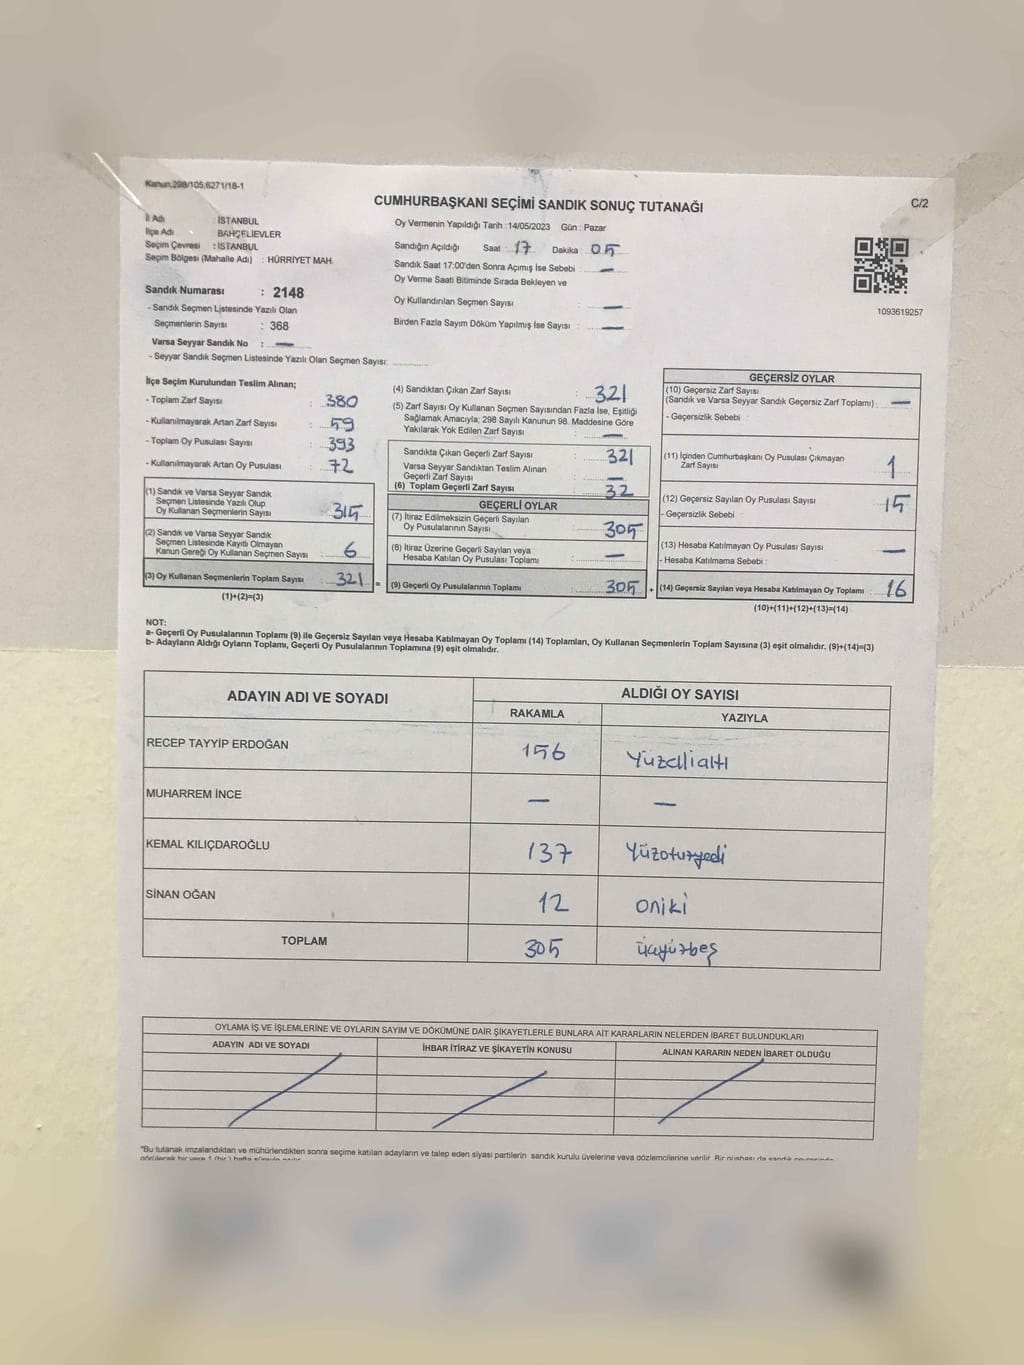 Kanun;298/105;6271/18-1
CUMHURBAŞKANI SEÇİMİ SANDIK SONUÇ TUTANAĞI
C/2
İl Adı : İSTANBUL
İlçe Adı : BAHÇELİEVLER
Seçim Çevresi : İSTANBUL
Seçim Bölgesi (Mahalle Adı) : HÜRRİYET MAH.
Sandık Numarası : 2148
- Sandık Seçmen Listesinde Yazılı Olan
Seçmenlerin Sayısı : 368
Varsa Seyyar Sandık No : —
- Seyyar Sandık Seçmen Listesinde Yazılı Olan Seçmen Sayısı:
Oy Vermenin Yapıldığı Tarih :14/05/2023 Gün : Pazar
Sandığın Açıldığı Saat : 17 Dakika : 05
Sandık Saat 17:00'den Sonra Açımış İse Sebebi : —
Oy Verme Saati Bitiminde Sırada Bekleyen ve
Oy Kullandırılan Seçmen Sayısı : —
Birden Fazla Sayım Döküm Yapılmış İse Sayısı : —
1093619257
İlçe Seçim Kurulundan Teslim Alınan;
- Toplam Zarf Sayısı : 380
- Kullanılmayarak Artan Zarf Sayısı : 59
- Toplam Oy Pusulası Sayısı : 393
- Kullanılmayarak Artan Oy Pusulası : 72
(1) Sandık ve Varsa Seyyar Sandık
Seçmen Listesinde Yazılı Olup
Oy Kullanan Seçmenlerin Sayısı : 315
(2) Sandık ve Varsa Seyyar Sandık
Seçmen Listesinde Kayıtlı Olmayan
Kanun Gereği Oy Kullanan Seçmen Sayısı : 6
(3) Oy Kullanan Seçmenlerin Toplam Sayısı : 321 =
(1)+(2)=(3)
(4) Sandıktan Çıkan Zarf Sayısı : 321
(5) Zarf Sayısı Oy Kullanan Seçmen Sayısından Fazla İse, Eşitliği
Sağlamak Amacıyla; 298 Sayılı Kanunun 98. Maddesine Göre
Yakılarak Yok Edilen Zarf Sayısı : —
Sandıkta Çıkan Geçerli Zarf Sayısı : 321
Varsa Seyyar Sandıktan Teslim Alınan
Geçerli Zarf Sayısı : —
(6) Toplam Geçerli Zarf Sayısı : 32
GEÇERLİ OYLAR
(7) İtiraz Edilmeksizin Geçerli Sayılan
Oy Pusulalarının Sayısı : 305
(8) İtiraz Üzerine Geçerli Sayılan veya
Hesaba Katılan Oy Pusulası Toplamı : —
(9) Geçerli Oy Pusulalarının Toplamı : 305 +
GEÇERSİZ OYLAR
(10) Geçersiz Zarf Sayısı
(Sandık ve Varsa Seyyar Sandık Geçersiz Zarf Toplamı) : —
- Geçersizlik Sebebi :
(11) İçinden Cumhurbaşkanı Oy Pusulası Çıkmayan
Zarf Sayısı : 1
(12) Geçersiz Sayılan Oy Pusulası Sayısı : 15
- Geçersizlik Sebebi :
(13) Hesaba Katılmayan Oy Pusulası Sayısı : —
- Hesaba Katılmama Sebebi :
(14) Geçersiz Sayılan veya Hesaba Katılmayan Oy Toplamı : 16
(10)+(11)+(12)+(13)=(14)
NOT:
a- Geçerli Oy Pusulalarının Toplamı (9) ile Geçersiz Sayılan veya Hesaba Katılmayan Oy Toplamı (14) Toplamları, Oy Kullanan Seçmenlerin Toplam Sayısına (3) eşit olmalıdır. (9)+(14)=(3)
b- Adayların Aldığı Oyların Toplamı, Geçerli Oy Pusulalarının Toplamına (9) eşit olmalıdır.
ADAYIN ADI VE SOYADI
ALDIĞI OY SAYISI
RAKAMLA YAZIYLA
RECEP TAYYİP ERDOĞAN 156 Yüzellialtı
MUHARREM İNCE — —
KEMAL KILIÇDAROĞLU 137 Yüzotuzyedi
SİNAN OĞAN 12 oniki
TOPLAM 305 üçyüzbeş
OYLAMA İŞ VE İŞLEMLERİNE VE OYLARIN SAYIM VE DÖKÜMÜNE DAİR ŞİKAYETLERLE BUNLARA AİT KARARLARIN NELERDEN İBARET BULUNDUKLARI
ADAYIN ADI VE SOYADI İHBAR İTİRAZ VE ŞİKAYETİN KONUSU ALINAN KARARIN NEDEN İBARET OLDUĞU
*Bu tutanak imzalandıktan ve mühürlendikten sonra seçime katılan adayların ve talep eden siyasi partilerin sandık kurulu üyelerine veya gözlemcilerine verilir. Bir nüshası da sandık